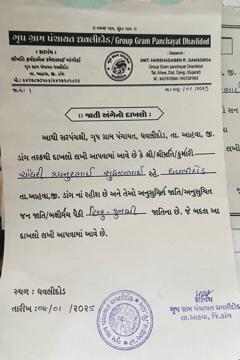 ગૃપ ગ્રામ પંચાયત ધવલીદોડ/Group Gram Panchayat Dhavlidod
: સરપંચ :
શ્રીમતિ હર્ષદાબેન રમેશભાઈ ગાંગોર્ડા
ગૃપ ગ્રામ પંચાયત ધવલીદોડ
તા. આહવા, જી. ડાંગ
: Sarpanch :
SMT. HARSHADABEN R. GANGORDA
Group Gram Panchayat Dhavlidod
Tal. Ahwa, Dist. Dang (Gujarat)
જા.નં. 1
/01 /2025
:: જાતી અંગેનો દાખલો ::
આથી સરપંચશ્રી, ગૃપ ગ્રામ પંચાયત, ધવલીદોડ, તા. આહવા, જી.
ડાંગ તરફથી દાખલો લખી આપવામાં આવે છે કે શ્રી/શ્રીમતિ/કુમારી
ચૌધરી સુરેશભાઈ રહે. ધવલીદોડ
તા.આહવા,જી. ડાંગ નાં રહીશ છે અને તેઓ અનુસુચિત જાતિ/અનુસુચિત
જન જાતી/બક્ષીપંચ પૈકી હિન્દુ-કુનબી જાતિના છે. જે બદલ આ
દાખલો લખી આપવામાં આવે છે.
સ્થળ : ધવલીદોડ
તારીખ : 08/01 /2025
સરપંચ
ગૃપ ગ્રામ પંચાયત ધવલીદોડ
તા.આહવા, જિ.ડાંગ